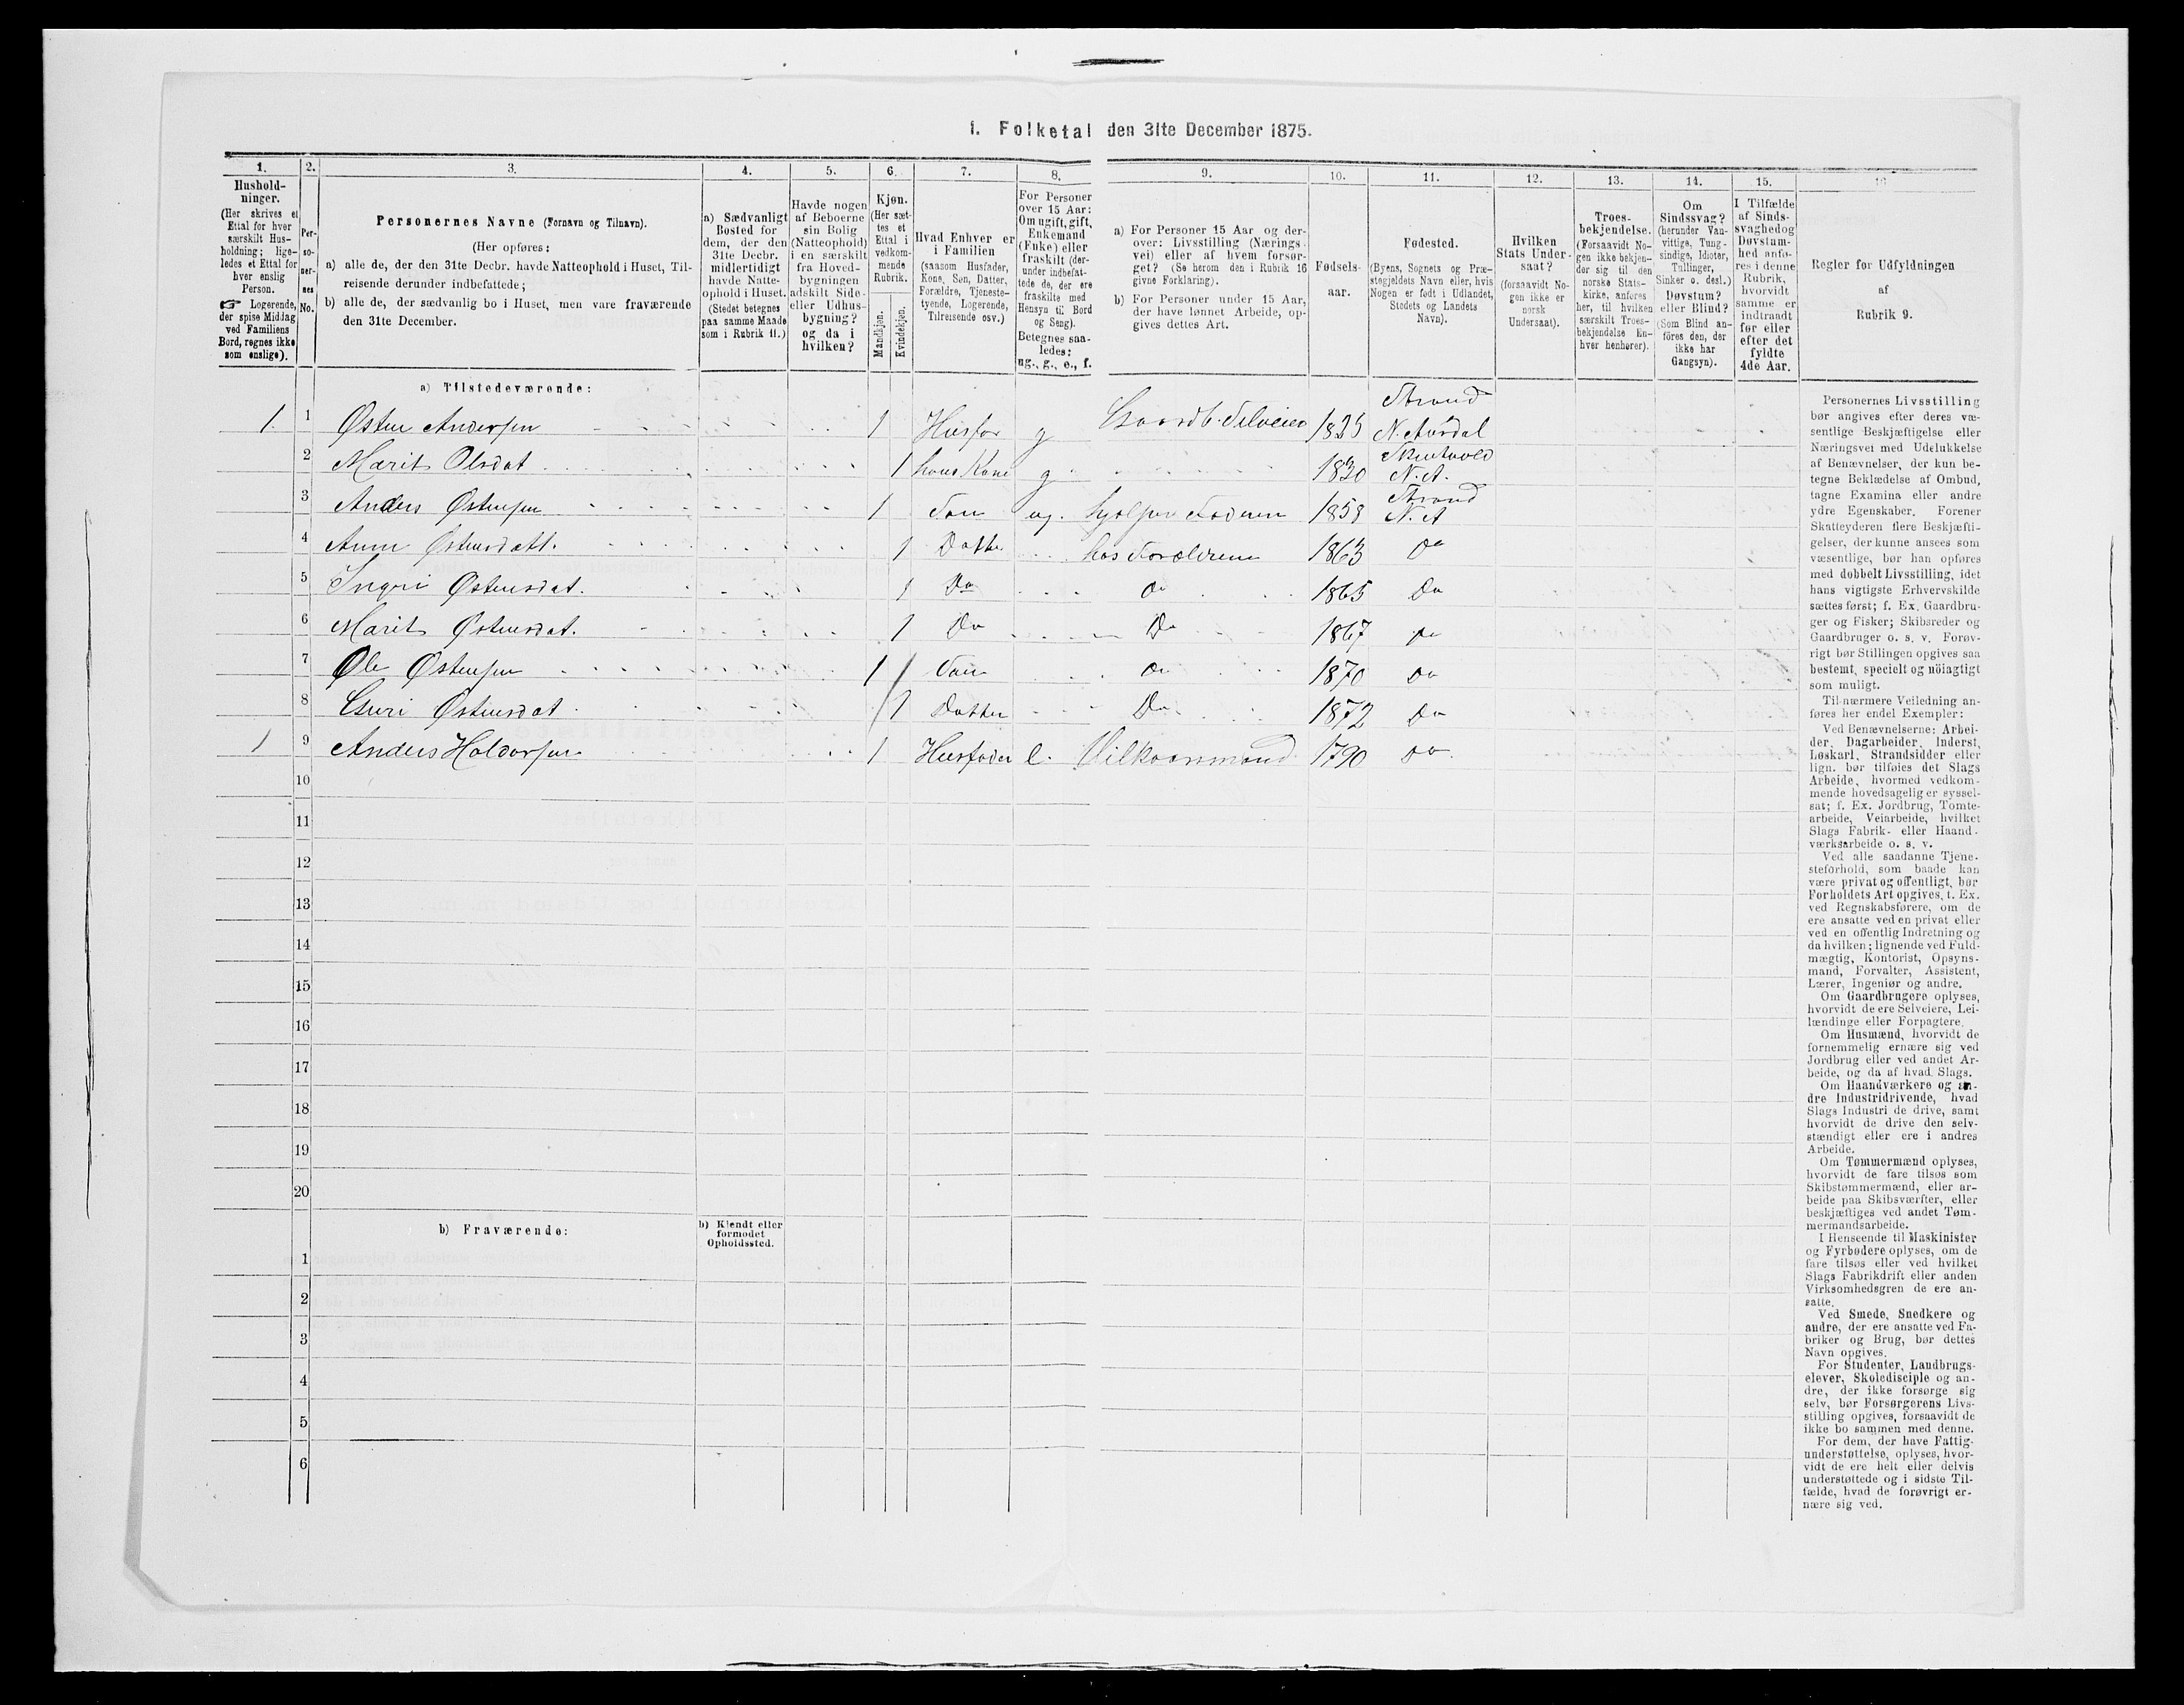 1. Folketal den 31te December 1875.
1.
Hushold-
ninger.
(Her skrives et
Ettal for hver
særskilt Hus-
holdning; lige-
ledes et Ettal for
hver enslig
Person.
☞ Logerende,
der spise Middag
ved Familiens
Bord, regnes ikke
som enslige).
2.
Per-
so-
ner-
nes
No.
3.
Personernes Navne (Fornavn og Tilnavn).
(Her opføres:
a) alle de, der den 31te Decbr. havde Natteophold i Huset, Til-
reisende derunder indbefattede;
b) alle de, der sædvanlig bo i Huset, men vare fraværende
den 31te December.
4.
a) Sædvanligt
Bosted for
dem, der den
31te Decbr.
midlertidigt
havde Natte-
ophold i Huset.
(Stedet betegnes
paa samme Maade
som i Rubrik 11.)
5.
Havde nogen
af Beboerne
sin Bolig
(Natteophold)
i en særskilt
fra Hoved-
bygningen
adskilt Side-
eller Udhus-
bygning?
og da i
hvilken?
6.
Kjøn.
(Her sæt-
tes et
Ettal i
vedkom-
mende
Rubrik.
Mandkjøn.
Kvindekjøn.
7.
Hvad Enhver er
i Familien
(saasom Husfader,
Kone, Søn, Datter,
Forældre, Tjeneste-
tyende, Logerende,
Tilreisende osv.)
8.
For Personer
over 15 Aar:
Om ugift, gift,
Enkemand
(Enke) eller
fraskilt (der-
under indbefat-
tede de, der ere
fraskilte med
Hensyn til Bord
og Seng).
Betegnes saa-
ledes:
ug., g., e., f.
9.
a) For Personer 15 Aar og der-
over: Livsstilling (Nærings-
vei) eller af hvem forsør-
get? (Se herom den i Rubrik 16
givne Forklaring).
b) For Personer under 15 Aar,
der have lønnet Arbeide, op-
gives dettes Art.
10.
Fødsels-
aar.
11.
Fødested.
(Byens, Sognets og Præ-
stegjeldets Navn eller, hvis
Nogen er født i Udlandet,
Stedets og Landets
Navn).
12.
Hvilken
Stats Under-
saat?
(forsaavidt No-
gen ikke er
norsk
Undersaat).
13.
Troes-
bekjendelse.
(Forsaavidt No-
gen ikke bekjen-
der sig til den
norske Stats-
kirke, anføres
her, til hvilken
særskilt Troes-
bekjendelse En-
hver henhører).
14.
Om
Sindssvag?
(herunder Van-
vittige, Tung-
sindige, Idioter,
Tullinger,
Sinker o. desl.)
Døvstum?
eller Blind?
(Som Blind an-
føres den, der
ikke har
Gangsyn).
15.
I Tilfælde
af Sinds-
svaghed og
Døvstum-
hed anfø-
res i denne
Rubrik,
hvorvidt
samme er
indtraadt
før eller
efter det
fyldte
4de Aar.
16
Regler for Udfyldningen
af
Rubrik 9.
a) Tilstedeværende:
1 1 Østen Andersen 1 Husfar g Gaardb. Selveier 1825 Strand N. Aurdal
2 Marit Olsdat 1 hans Kone g 1830 N. A.
3 Anders Østensen 1 Søn ug. hjelper Faderen 1858 Strand N. A
4 Anne Østensdatt. 1 Datter hos Forældrene 1863 Do
5 Ingri Østensdat. 1 Do Do 1865 Do
6 Marit Østensdat. 1 Do Do 1867 Do
7 Ole Østensen 1 Søn Do 1870 Do
8 Guri Østensdat 1 Datter Do 1872 Do
1 9 Anders Haldorsen 1 Husfader e. Vilkaarsmand 1790 Do.
10
11
12
13
14
15
16
17
18
19
20
b) Fraværende:
b) Kjendt eller
formodet
Opholdssted.
1
2
3
4
5
6
Personernes Livsstilling
bør angives efter deres væ-
sentlige Beskjæftigelse eller
Næringsvei med Udelukkelse
af Benævnelser, der kun be-
tegne Beklædelse af Ombud,
tagne Examina eller andre
ydre Egenskaber. Forener
Skatteyderen flere Beskjæfti-
gelser, der kunne ansees som
væsentlige, bør han opføres
med dobbelt Livsstilling, idet
hans vigtigste Erhvervskilde
sættes først; f. Ex. Gaardbru-
ger og Fisker; Skibsreder og
Gaardbruger o. s. v. Forøv-
rigt bør Stillingen opgives saa
bestemt, specielt og nöiagtigt
som muligt.
Til nærmere Veiledning an-
føres her endel Exempler:
Ved Benævnelserne: Arbei-
der, Dagarbeider, Inderst,
Løskarl, Strandsidder eller
lign. bør tilføies det Slags
Arbeide, hvormed vedkom-
mende hovedsagelig er syssel-
sat; f. Ex. Jordbrug, Tomte-
arbeide, Veiarbeide, hvilket
Slags Fabrik- eller Haand-
værksarbeide o. s. v.
Ved alle saadanne Tjene-
steforhold, som baade kan
være privat og offentligt, bør
Forholdets Art opgives, t. Ex.
ved Regnskabsførere, om de
ere ansatte ved en privat eller
ved en offentlig Indretning og
da hvilken; lignende ved Fuld-
mægtig, Kontorist, Opsyns-
mand, Forvalter, Assistent,
Lærer, Ingeniør og andre.
Om Gaardbrugere oplyses,
hvorvidt de ere Selveiere, Lei-
lændinge eller Forpagtere.
Om Husmænd, hvorvidt de
fornemmelig ernære sig ved
Jordbrug eller ved andet Ar-
beide, og da af hvad Slags.
Om Haandværkere og an-
dre Industridrivende, hvad
Slags Industri de drive, samt
hvorvidt de drive den selv-
stændigt eller ere i andres
Arbeide.
Om Tømmermænd oplyses,
hvorvidt de fare tilsøs som
Skibstømmermænd, eller ar-
beide paa Skibsværfter, eller
beskjæftiges ved andet Tøm-
mermandsarbeide.
I Henseende til Maskinister
og Fyrbødere oplyses, om de
fare tilsøs eller ved hvilket
Slags Fabrikdrift eller anden
Virksomhedsgren de ere an-
satte.
Ved Smede, Snedkere og
andre, der ere ansatte ved Fa-
briker og Brug, bør dettes
Navn opgives.
For Studenter, Landbrugs-
elever, Skoledisciple og an-
dre, der ikke forsørge sig
selv, bør Forsørgerens Livs-
stilling opgives, forsaavidt de
ikke bo sammen med denne.
For dem, der have Fattig-
understøttelse, oplyses, hvor-
vidt de ere helt eller delvis
understøttede og i sidste Til-
fælde, hvad de forøvrigt er-
nære sig ved.